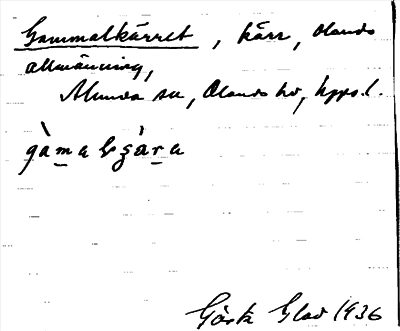 Gammalkärret, kärr, Olands
allmänning,
Alunda sn, Olands hd, Upps.l.
Gösta Glad 1936